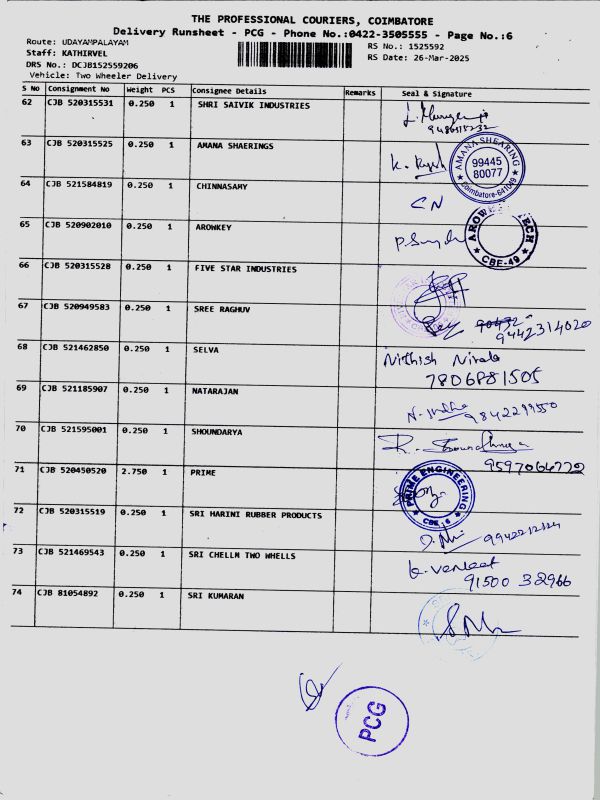 THE PROFESSIONAL COURIERS, COIMBATORE
Delivery Runsheet - PCG - Phone No.:0422-3505555 - Page No.:6
Route: UDAYAMPALAYAM
Staff: KATHIRVEL
DRS No.: DCJB152559206
Vehicle: Two Wheeler Delivery
RS No.: 1525592
RS Date: 26-Mar-2025
S No Consignment No Weight PCS Consignee Details Remarks Seal & Signature
62 CJB 520315531 0.250 1 SHRI SAIVIK INDUSTRIES
63 CJB 520315525 0.250 1 AMANA SHAERINGS
AMANA SHEARING
99445
80077
Coimbatore-641049
64 CJB 521584819 0.250 1 CHINNASAMY CN
65 CJB 520902010 0.250 1 AROWKEY
CBE-49
66 CJB 520315528 0.250 1 FIVE STAR INDUSTRIES
67 CJB 520949583 0.250 1 SREE RAGHUV
9442314020
68 CJB 521462850 0.250 1 SELVA Nithish Nirala
7806881505
69 CJB 521185907 0.250 1 NATARAJAN
9842299550
70 CJB 521595001 0.250 1 SHOUNDARYA
9597064772
71 CJB 520450520 2.750 1 PRIME
PRIME ENGINEERING
72 CJB 520315519 0.250 1 SRI HARINI RUBBER PRODUCTS
73 CJB 521469543 0.250 1 SRI CHELLM TWO WHELLS
91500 32966
74 CJB 81054892 0.250 1 SRI KUMARAN
PCG